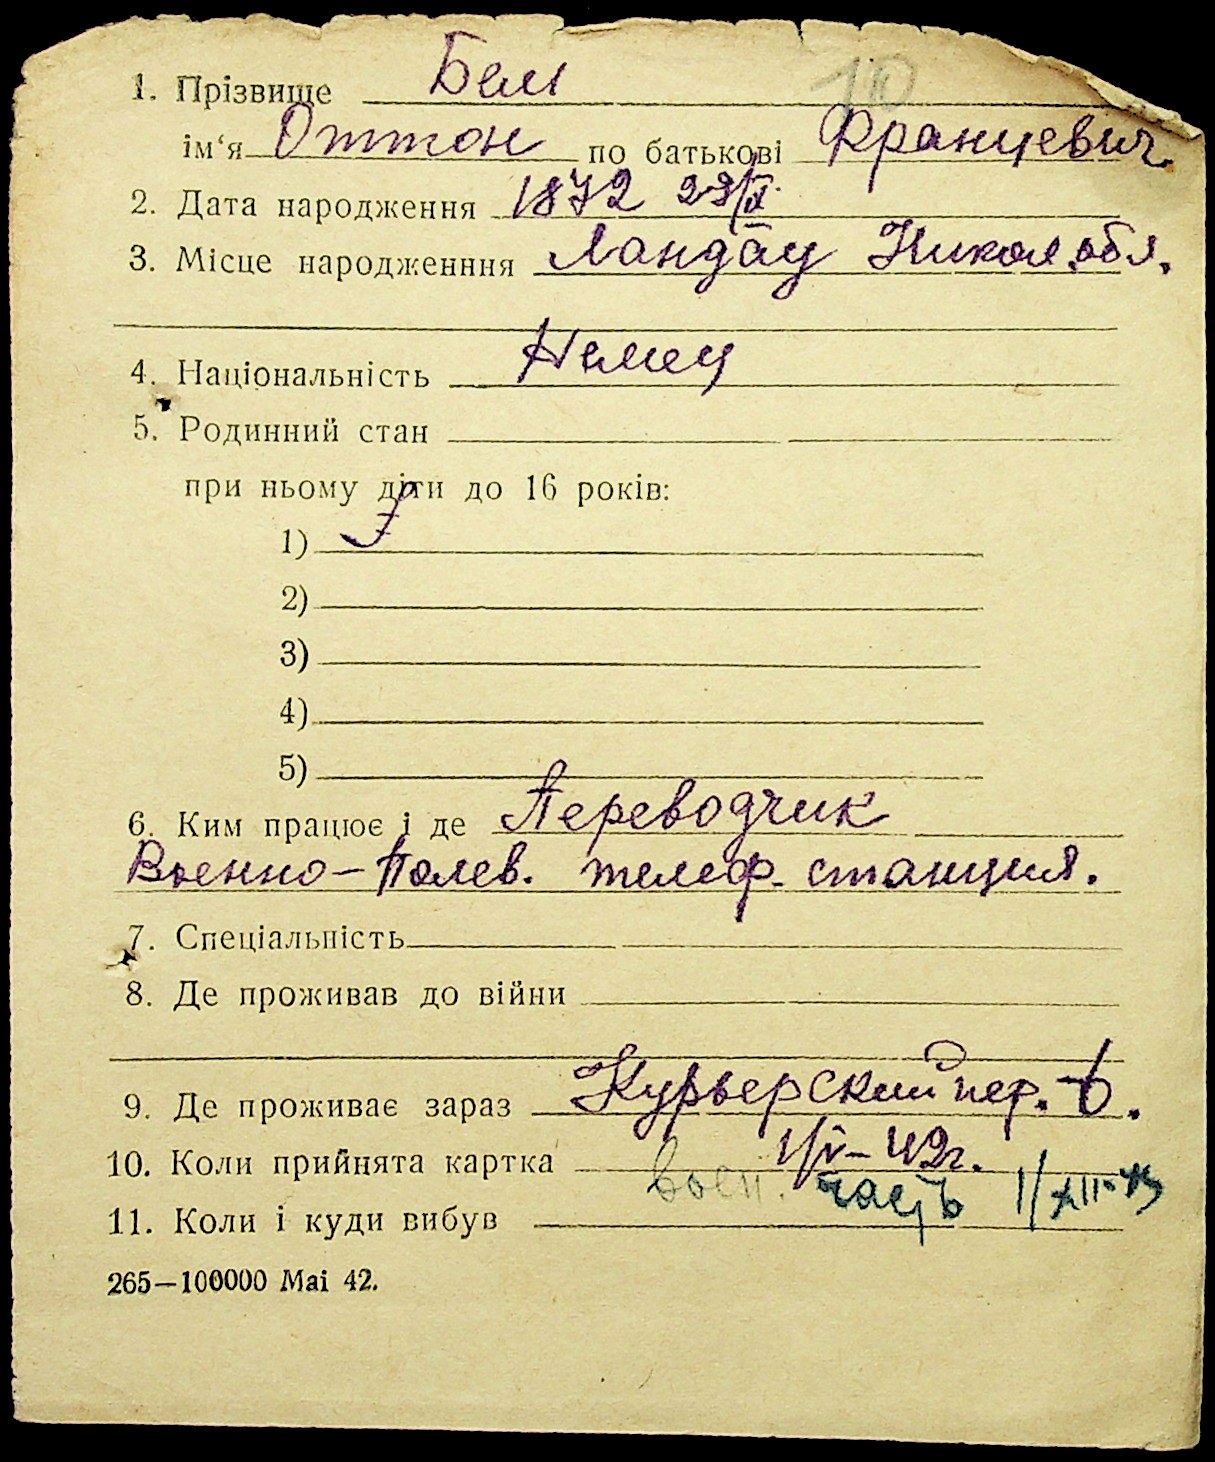 10
1. Прізвище Бем
ім‘я Оттон по батькові Францевич
2. Дата народження 1872 23/IX.
3. Місце народженння Ландау Никол. обл.
4. Національність Немец
5. Родинний стан
при ньому діти до 16 років:
1)
2)
3)
4)
5)
6. Ким працює і де Переводчик
Военно-Полев. телеф. станция.
7. Спеціальність
8. Де проживав до війни
9. Де проживає зараз Курьерский пер. 6.
10. Коли прийнята картка 1/V-42г.
11. Коли і куди вибув воен. часть 1/XII-43
265—100000 Mai 42.